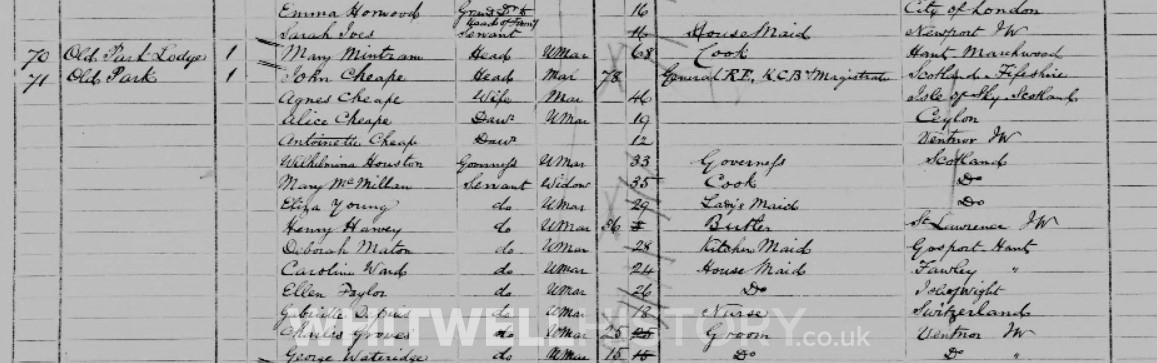 Emma Horwood Grand Dr 16 City of London
Head of Family
Sarah Ives Servant 16 House Maid Newport IW
70 Old Park Lodge 1 Mary Mintram Head UMar 68 Cook Hant Marchwood
71 Old Park 1 John Cheape Head Mar 78 General RE, KCB, Magistrate Scotland Fifeshire
Agnes Cheape Wife Mar 46 Isle of Sky Scotland
Alice Cheape Daur UMar 19 Ceylon
Antoinette Cheap Daur 12 Ventnor IW
Wilhelmina Houston Governess UMar 33 Governess Scotland
Mary McMillan Servant Widow 35 Cook Do
Eliza Young do UMar 29 Lady's Maid Do
Henry Harvey do UMar 36 Butler St Lawrence IW
Deborah Maton do UMar 28 Kitchen Maid Gosport Hant
Caroline Ward do UMar 24 House Maid Fawley "
Ellen Taylor do UMar 26 Do Isle of Wight
Gabrielle do UMar 18 Nurse Switzerland
Charles Groves do UMar 25 25 Groom Ventnor IW
George Wateridge do UMar 15 15 Do Do "
NITWELLHISTORY.co.uk